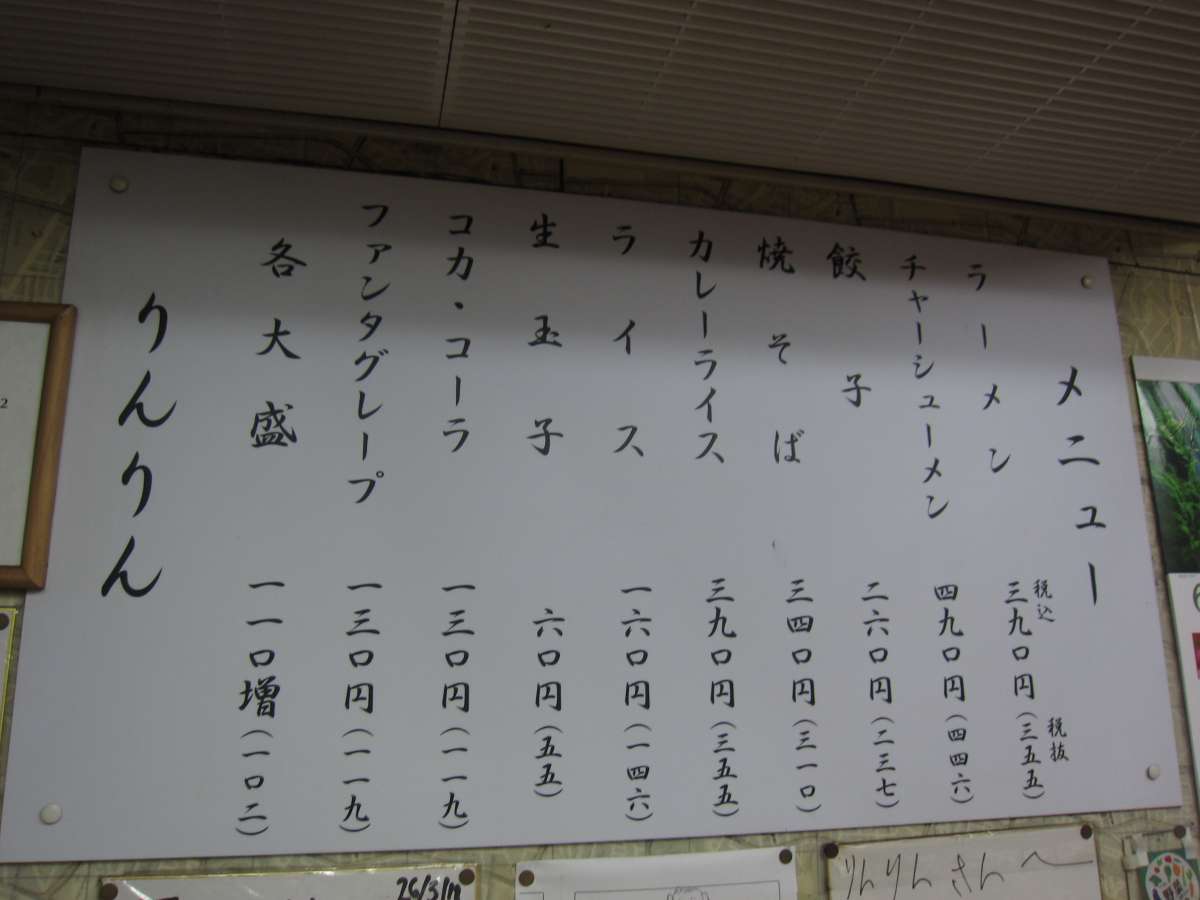 メニュー
税込 税抜
ラーメン 三九〇円(三五五)
チャーシューメン 四九〇円(四四六)
餃子 二六〇円(二三七)
焼そば 三四〇円(三一〇)
カレーライス 三九〇円(三五五)
ライス 一六〇円(一四六)
生玉子 六〇円(五五)
コカ・コーラ 一三〇円(一一九)
ファンタグレープ 一三〇円(一一九)
各大盛 一一〇増(一〇二)
りんりん
りんりんさんへ